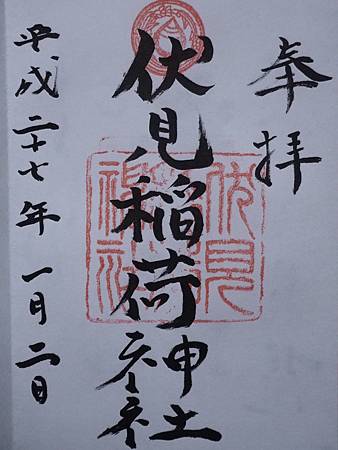 奉拝
伏見稲荷神社
平成二十七年一月二日